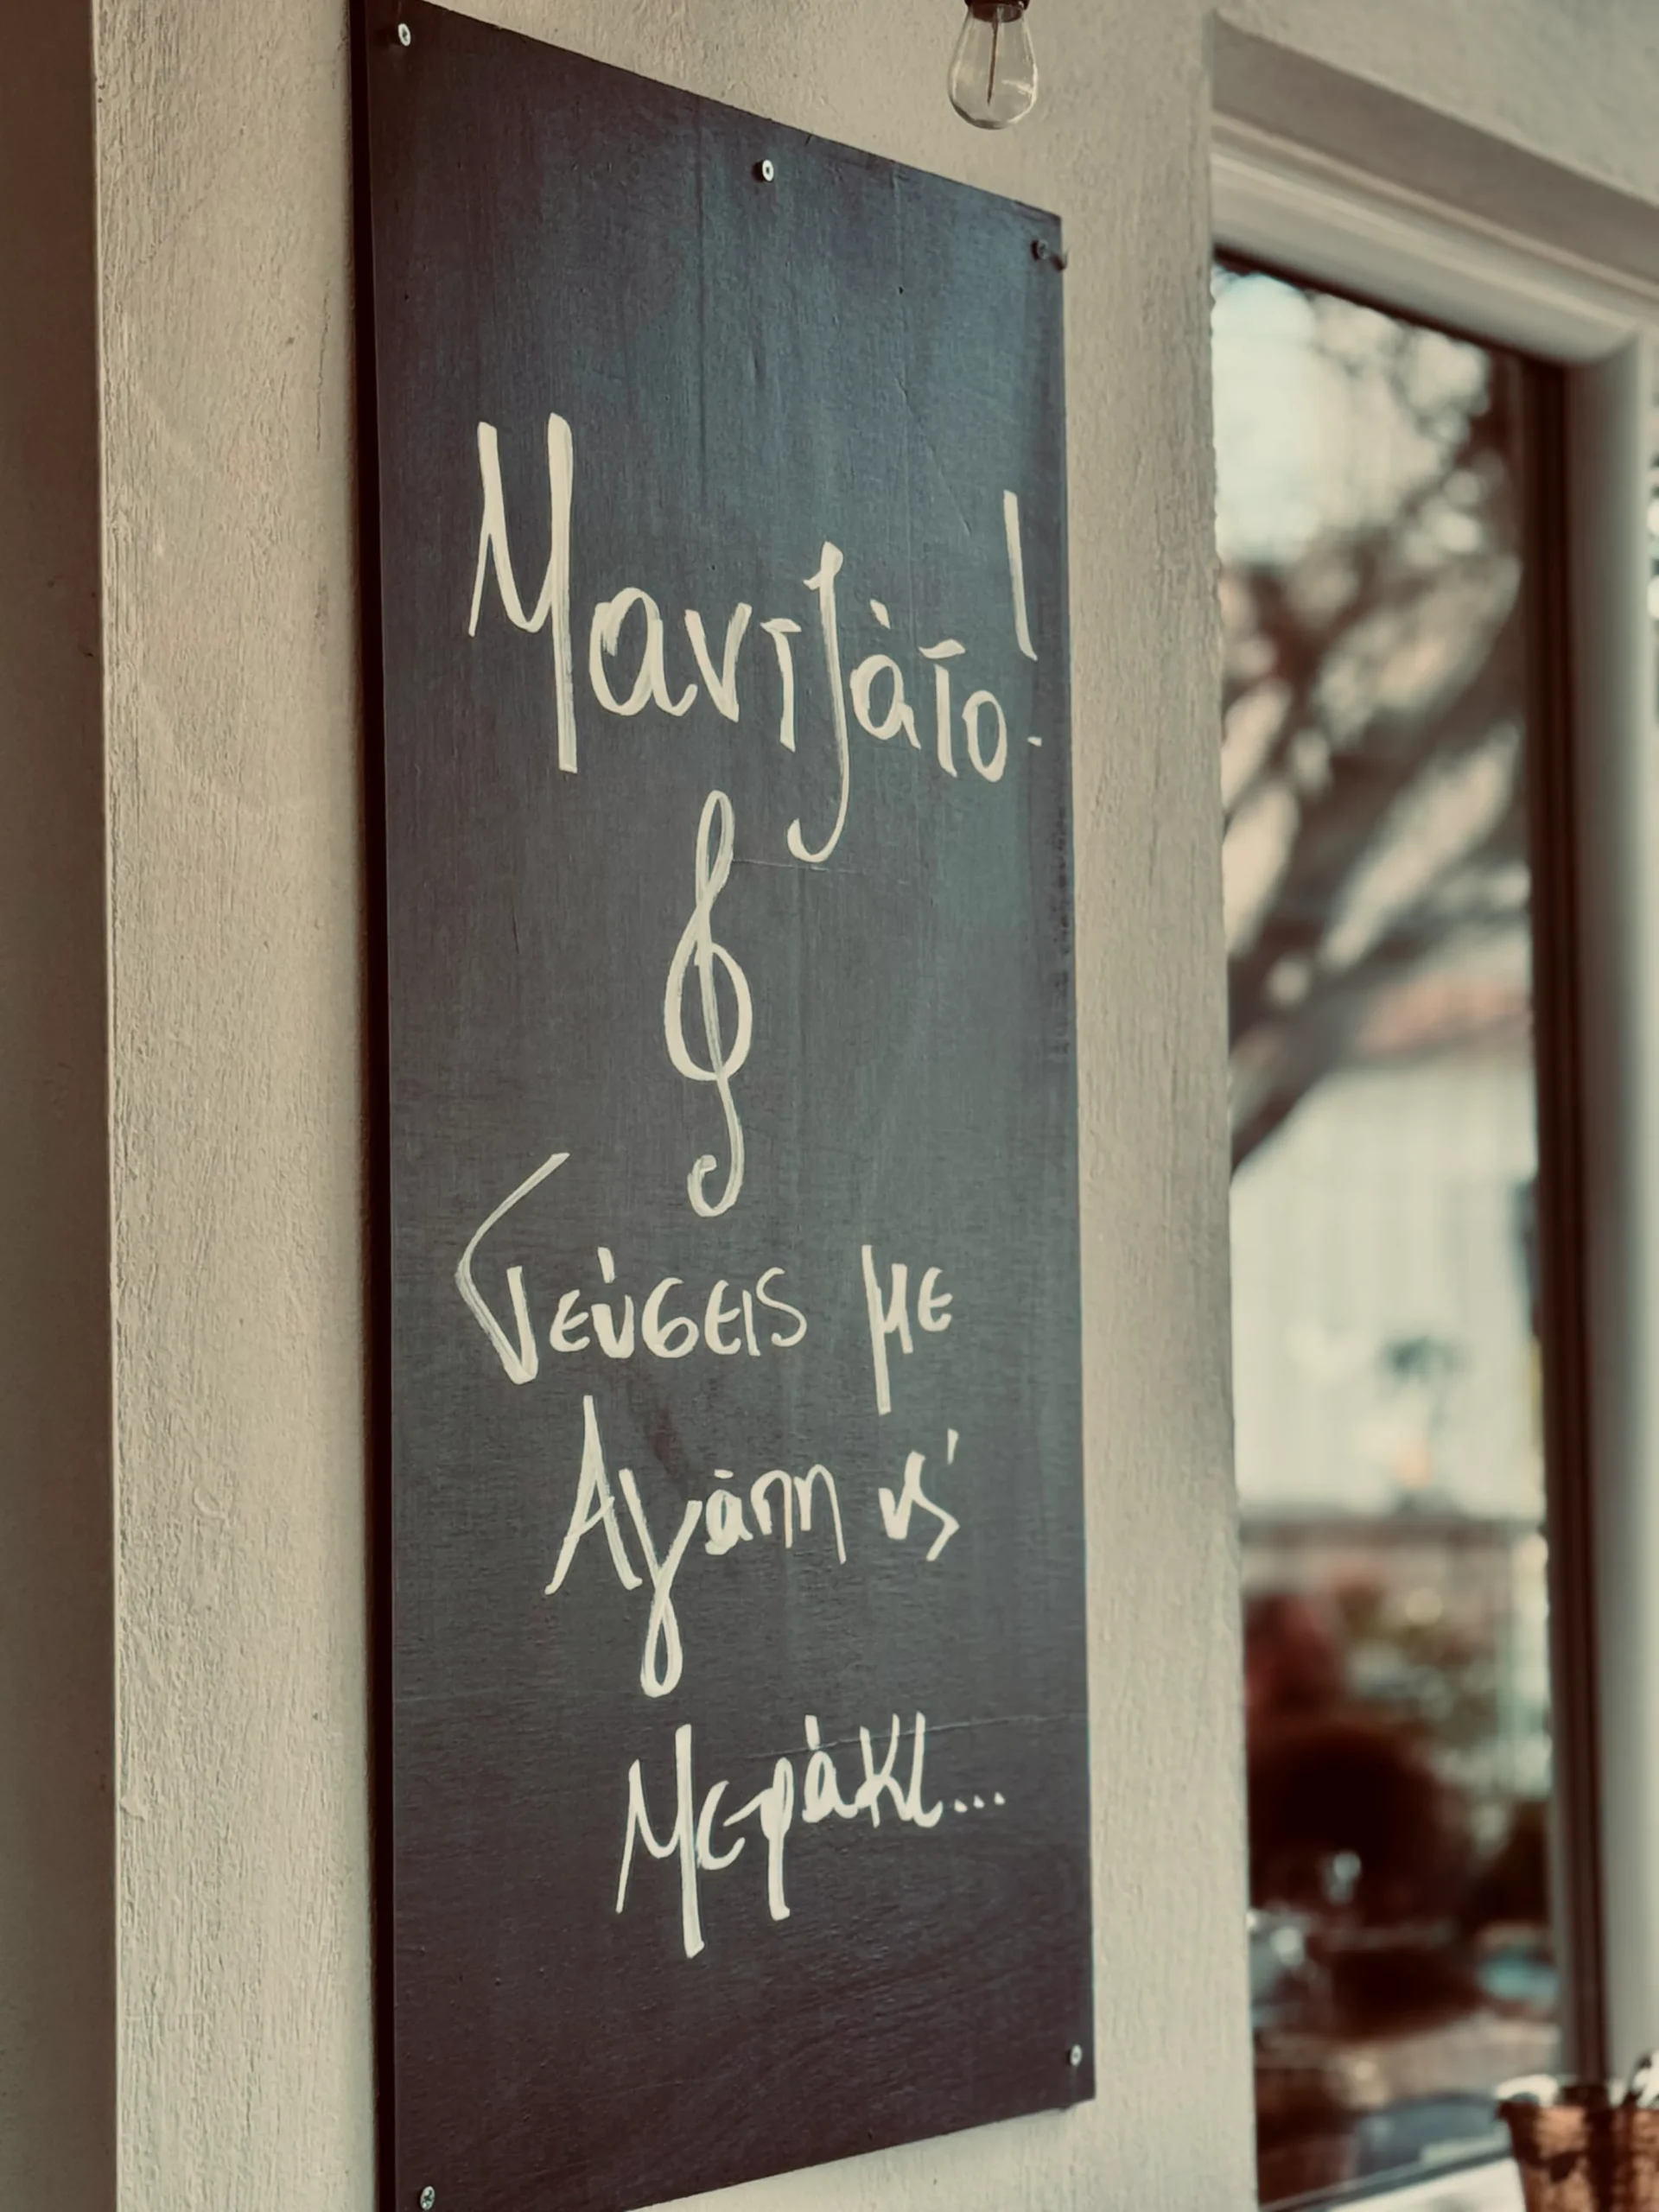 Μαντζάτο!
Γεύσεις με
Αγάπη κι'
Μεράκι...